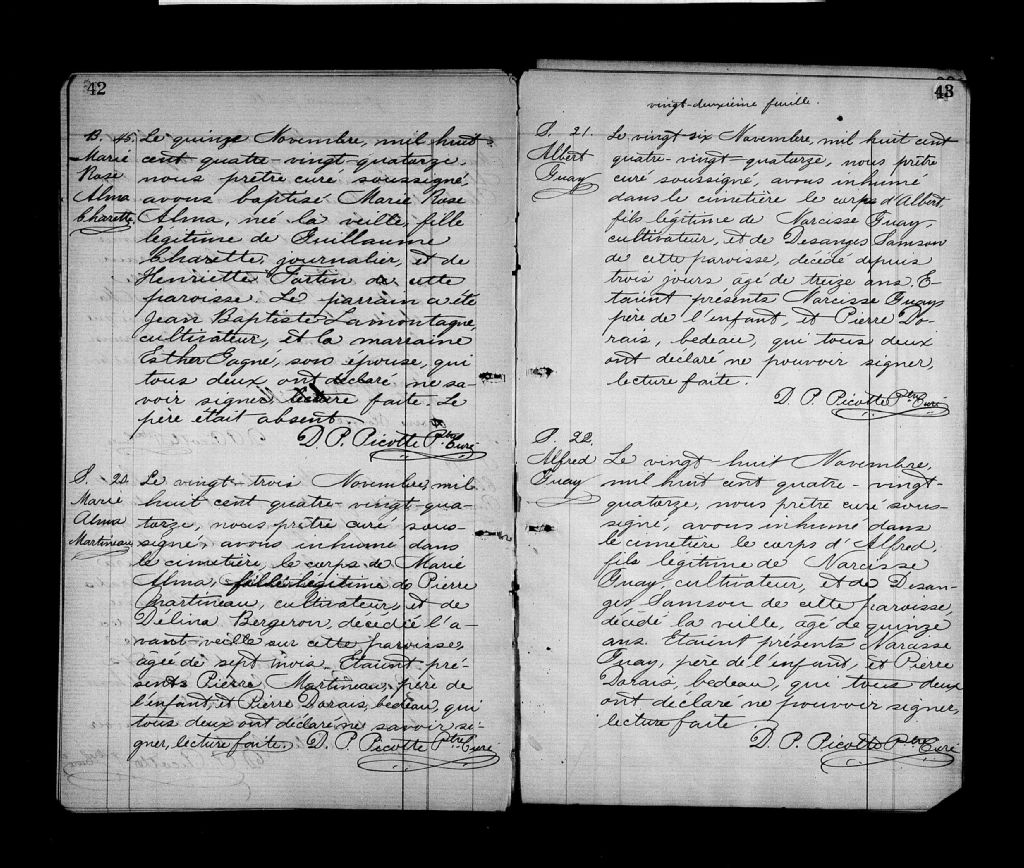 42
B. 45.
Marie
Rose
Alma
Charette
Le quinze Novembre, mil huit
cent quatre-vingt-quatorze,
nous prêtre curé soussigné,
avons baptisé Marie Rose
Alma, née la veille, fille
légitime de Guillaume
Charette, journalier, et de
Henriette Fortin de cette
paroisse. Le parrain a été
Jean Baptiste Lamontagne,
cultivateur, et la marraine
Esther Gagné, son épouse, qui
tous deux ont déclaré ne sa-
voir signer lecture faite. Le
père était absent
D. P. Picotte Ptre Curé
S. 20.
Marie
Alma
Martineau
Le vingt-trois Novembre, mil
huit cent quatre-vingt-qua-
torze, nous prêtre curé sous-
signé, avons inhumé dans
le cimetière, le corps de Marie
Alma, fille légitime de Pierre
Martineau, cultivateur, et de
Délina Bergeron, décédée l'a-
vant-veille sur cette paroisse,
agée de sept mois. Etaient pré-
sents Pierre Martineau, père de
l'enfant, et Pierre Dorais, bedeau, qui
tous deux ont déclaré ne savoir si-
gner, lecture faite. D. P. Picotte Ptre Curé
43
vingt-deuxième feuille.
S. 21.
Albert
Guay
Le vingt six Novembre, mil huit cent
quatre-vingt-quatorze, nous prêtre
curé soussigné, avons inhumé
dans le cimetière le corps d'Albert
fils légitime de Narcisse Guay,
cultivateur, et de Desanges Samson
de cette paroisse, décédé depuis
trois jours agé de treize ans. E-
taient présents Narcisse Guay
père de l'enfant, et Pierre Do-
rais, bedeau, qui tous deux
ont déclaré ne pouvoir signer,
lecture faite.
D. P. Picotte Ptre Curé
S. 22.
Alfred
Guay
Le vingt-huit Novembre,
mil huit cent quatre-vingt-
quatorze, nous prêtre curé sous-
signé, avons inhumé dans
le cimetière le corps d'Alfred,
fils légitime de Narcisse
Guay cultivateur, et de Desan-
ges Samson de cette paroisse,
décédé la veille, agé de quinze
ans. Etaient présents Narcisse
Guay, père de l'enfant, et Pierre
Dorais, bedeau, qui tous deux
ont déclaré ne pouvoir signer,
lecture faite.
D. P. Picotte Ptre Curé